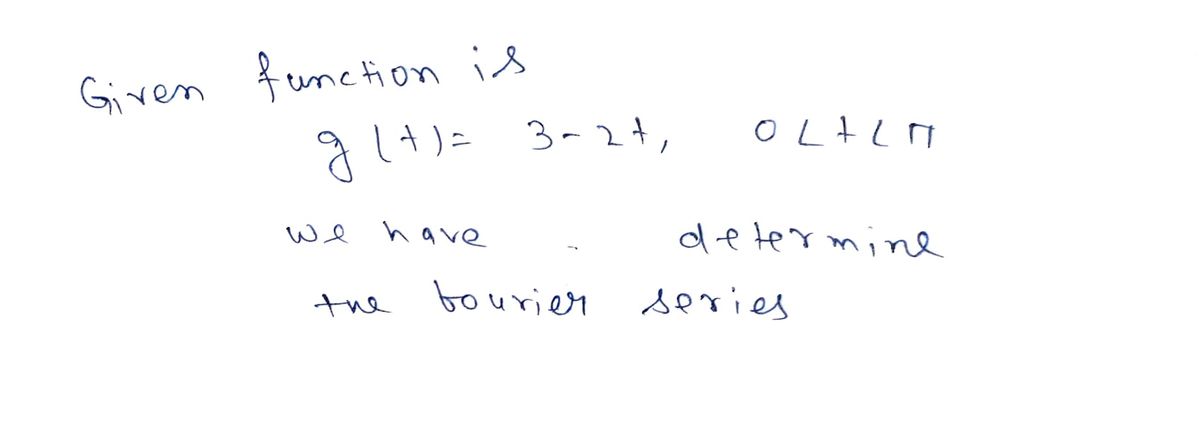 Given function is
g(t) = 3-2t, 0<t<π
we have determine
the fourier series